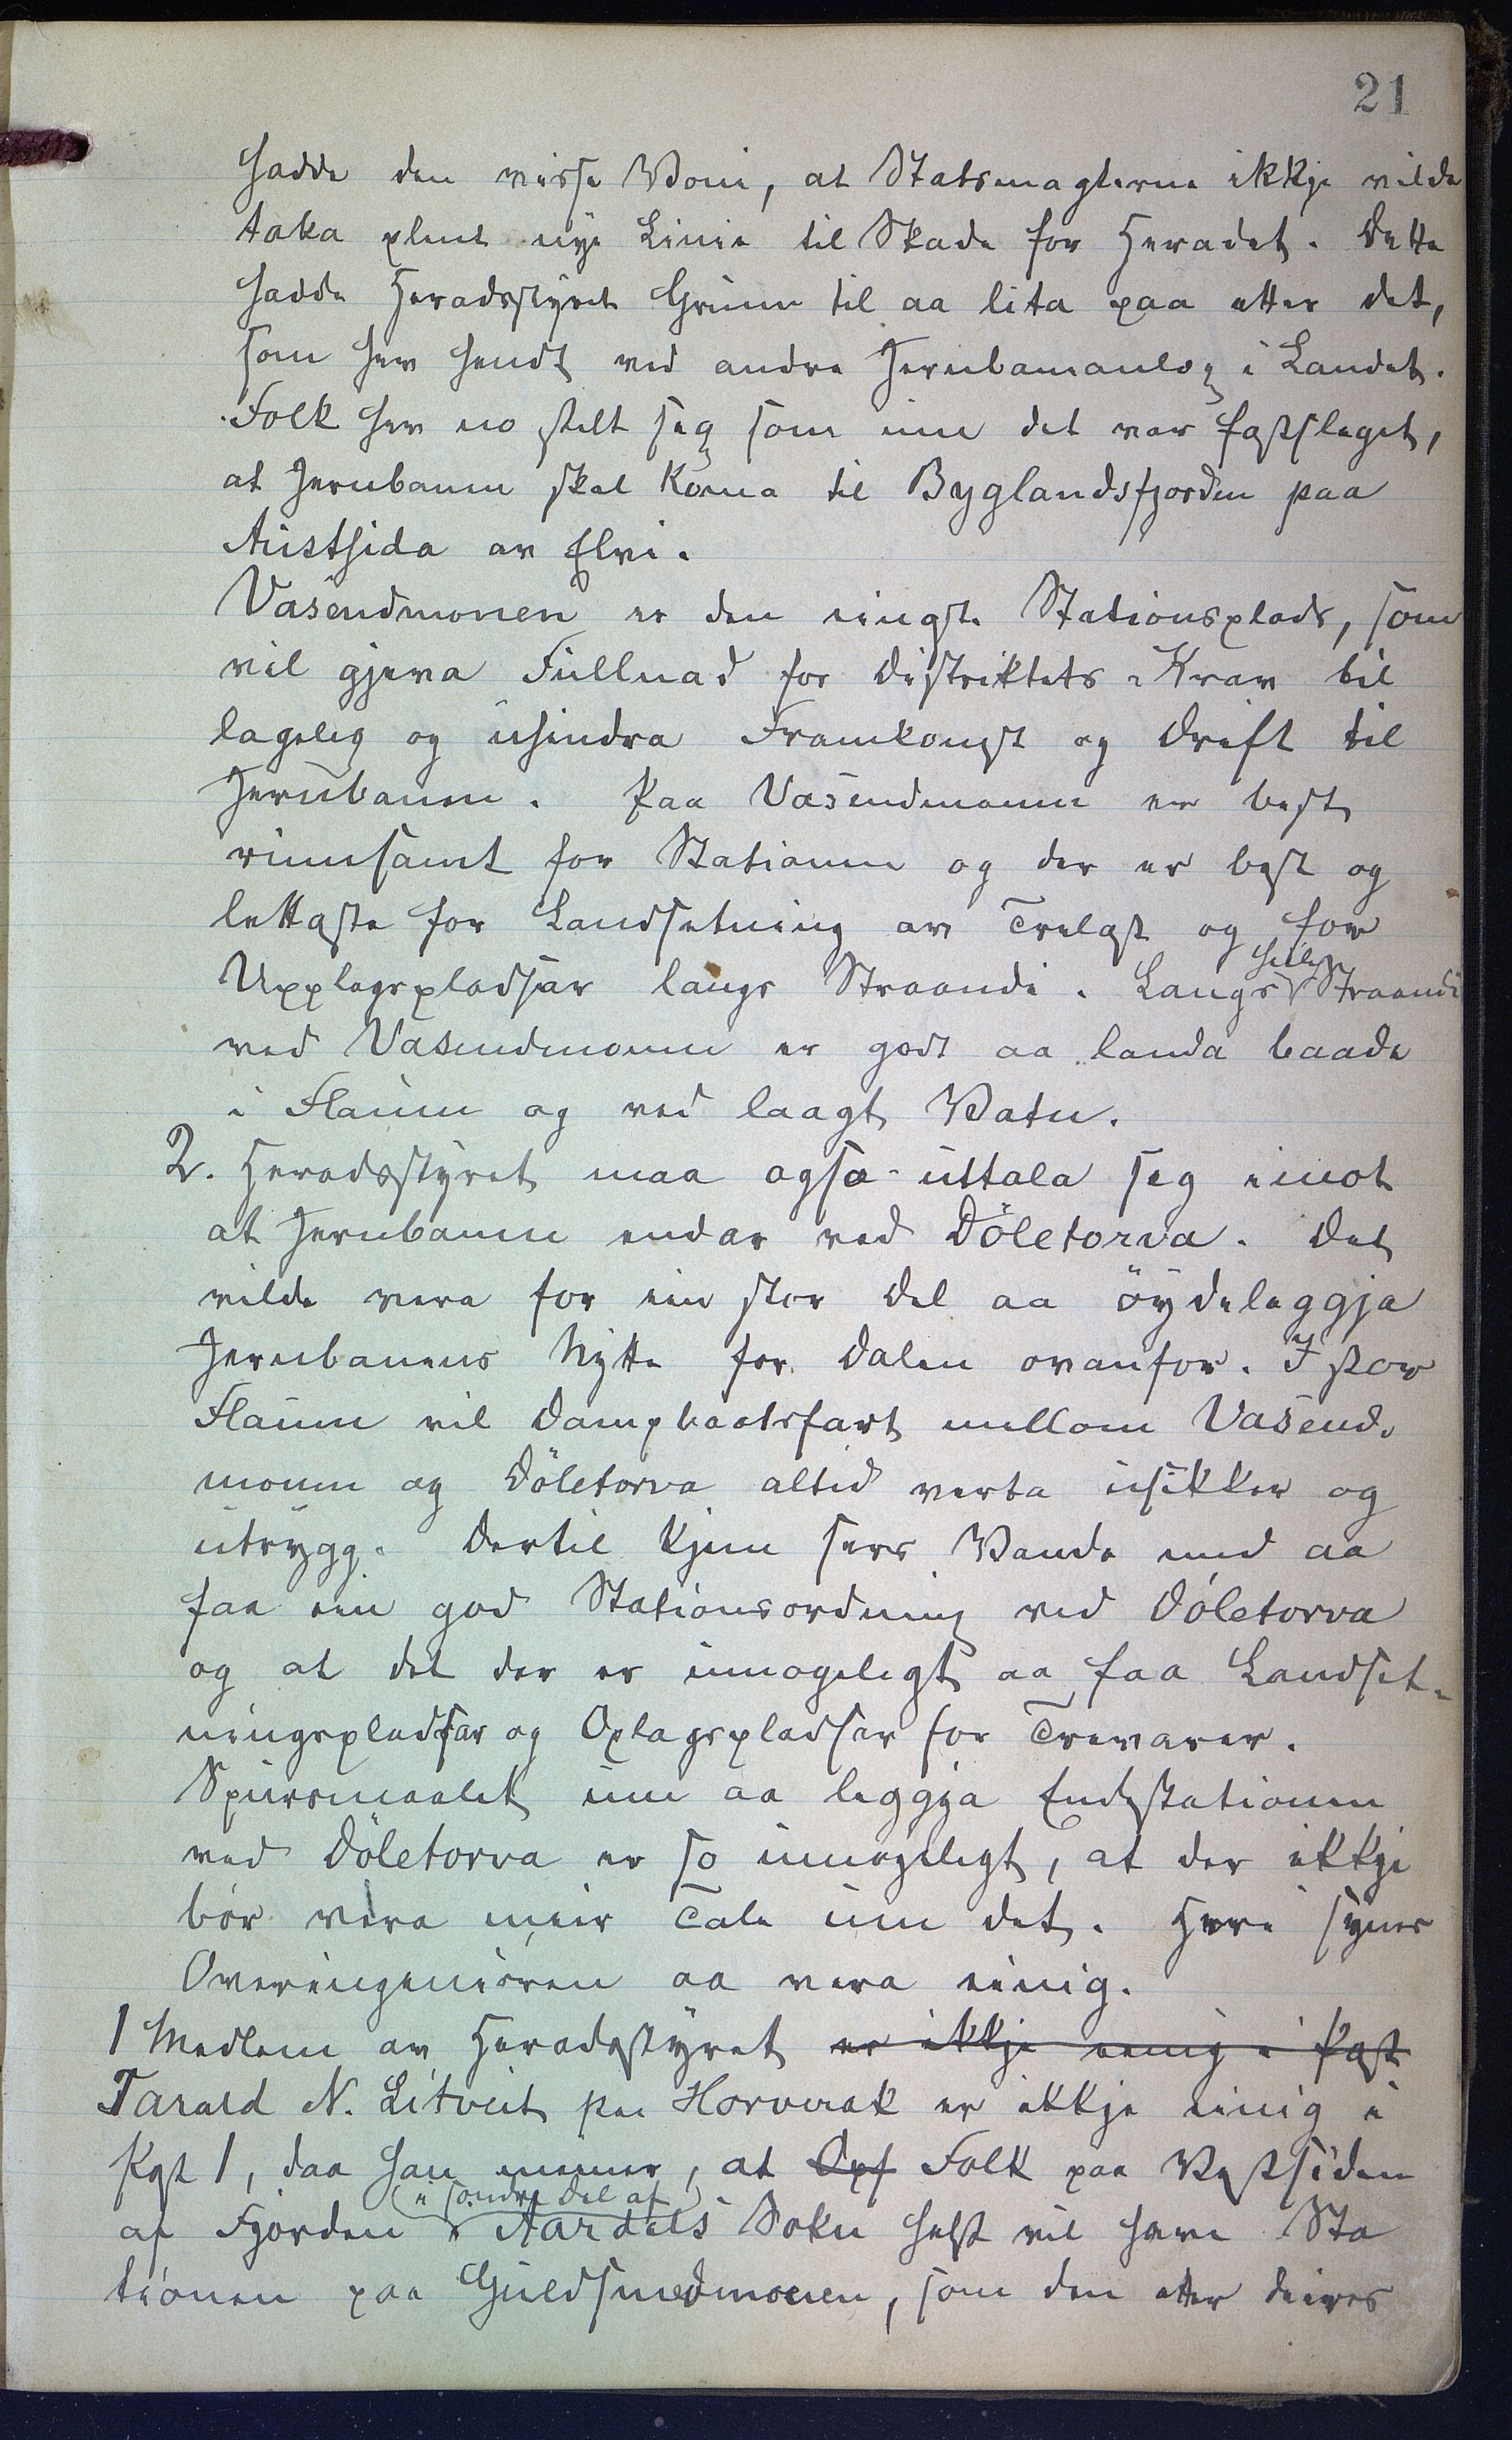 21
hadde den visse Voni, at Statsmagterne ikkje vilde
taka plent nye Linie til Skade for Heradet. Dette
hadde Heradsstyret Grunn til aa lita paa etter det,
som hev hendt ved andre Jernbaneanlog i Landet.
Folk hev no stelt seg som um det var fastslaget,
at Jernbanen skal koma til Byglandsfjorden paa
Austsida av Elvi.
Vasendmonen er den eingste Stationsplads, som
vil gjeva Fullnad for Distriktets Krav til
lageleg og uhindra Framkomst og Drift til
Jernbanen. Paa Vasendmonen er best
rumsamt for Stationen og der er best og
lettaste for Landsetning av Trelast og for
Upplagspladsar langs Straandi. Langs heile Straandi
ved Vasendmonen er godt aa landa baade
i Flaum og ved laagt Vatn.
2. Heradsstyret maa ogso uttala seg imot
at Jernbanen endar ved Döletorva. Det
vilde vera for ein stor Del aa öydeleggja
Jernbanens Nytte for Dalen ovanfor. I stor
Flaum vil Dampbaatsfart millom Vasend-
monen og Döletorva altid verta usikker og
utrygg. Dertil kjem sers Vande med aa
faa ein god Stationsordning ved Döletorva
og at det der er umogelegt aa faa Landset-
ningspladsar og Oplagspladser for Trevarer.
Spursmaalet um aa leggja Endestationen
ved Döletorva er so umogelegt, at der ikkje
bör vera meir Tale um det. Heri synes
Overingeniören aa vera einig.
1 Medlem av Heradsstyret er ikkje einig i Post
Tarald N. Litveit paa Horverak er ikkje einig i
Pgt 1, daa han meiner, at Opf Folk paa Vestsiden
(i söndre Del af)
af Fjorden i Aardals Sokn helst vil have Sta
tionen paa Guldsmedmoen, som den etter deires